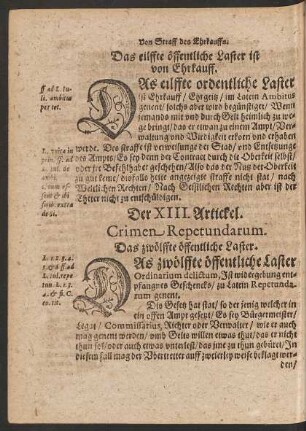 Von Straff des Ehrkauffs.
Das eilffte öffentliche Laster ist
von Ehrkauff.
DAs eilffte ordentliche Laster
ist Ehrkauff / Ehrgeitz / im Latein Ambitus
genent / solchs aber wird begünstiget / Wenn
jemands mit und durch Gelt heimlich zu weg
bringt / das er etwan zu einem Ampt / Ver-
waltung und Wirdikeit erkorn und erhaben
werde. Des straffe ist verweisunge der Stad / und Entsetzunge
des Ampts / Es sey denn der Contract durch die Oberkeit selbst /
oder jre Befehlhaber geschehen / Also das der Nutz der Oberkeit
zu gut keme / disfalls keine angezeigte straffe nicht stat / nach
Weltlichen Rechten / Nach Geistlichen Rechten aber ist der
Theter nicht zu entschüldigen.
Der XIII. Artickel.
Crimen Repetundarum.
Das zwölffte öffentliche Laster.
DAs zwölffte öffentliche Laster
Ordinarium delictum, Ist widergebung ent-
pfangnes Geschencks / zu Latein Repetunda-
rum genent.
Dis Gesetz hat stat / so der jenig welcher in
ein offen Ampt gesetzt / Es sey Bürgemeister /
Legat / Commissarius, Richter oder Verwalter / wie er auch
mag genent werden / umb Geltes willen etwas thut / das er nicht
thun sol / oder auch etwas unterlest / das jme zu thun gebüret / In
diesem fall mag der Vbertretter auff zweierley weise beklagt wer-
den /